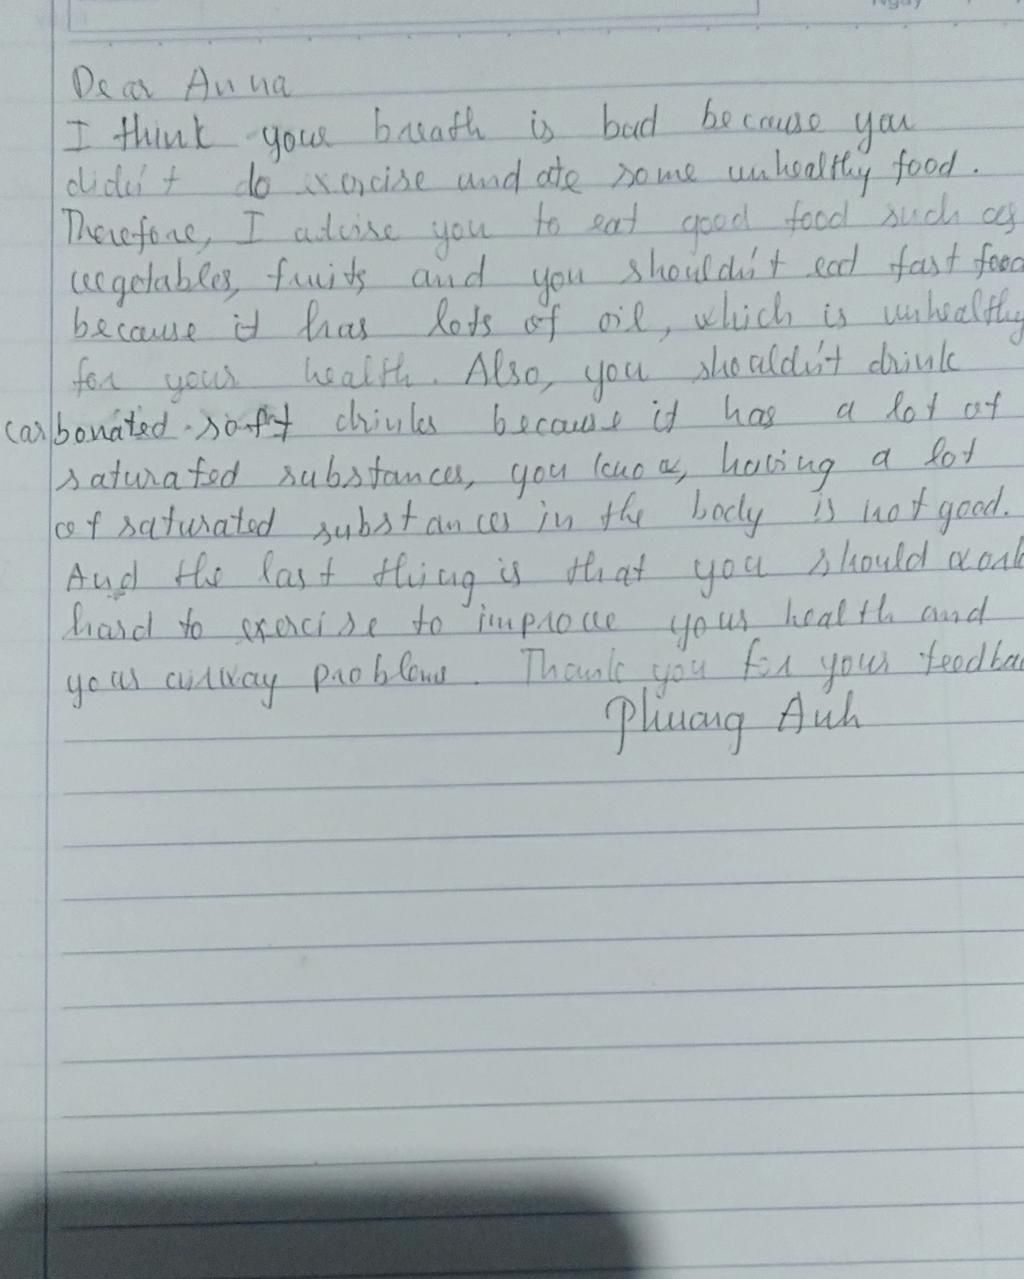 Ngày
Dear Anna
I think your breath is bad because you
didn't do exercise and ate some unhealthy food.
Therefore, I advise you to eat good food such as
vegetables, fruits and you shouldn't eat fast food
because it has lots of oil, which is unhealthy
for your health. Also, you shouldn't drink
carbonated soft drinks because it has a lot of
saturated substances, you know, having a lot
of saturated substances in the body is not good.
And the last thing is that you should work
hard to exercise to improve your health and
your airway problems. Thank you for your feedba
Phuong Anh